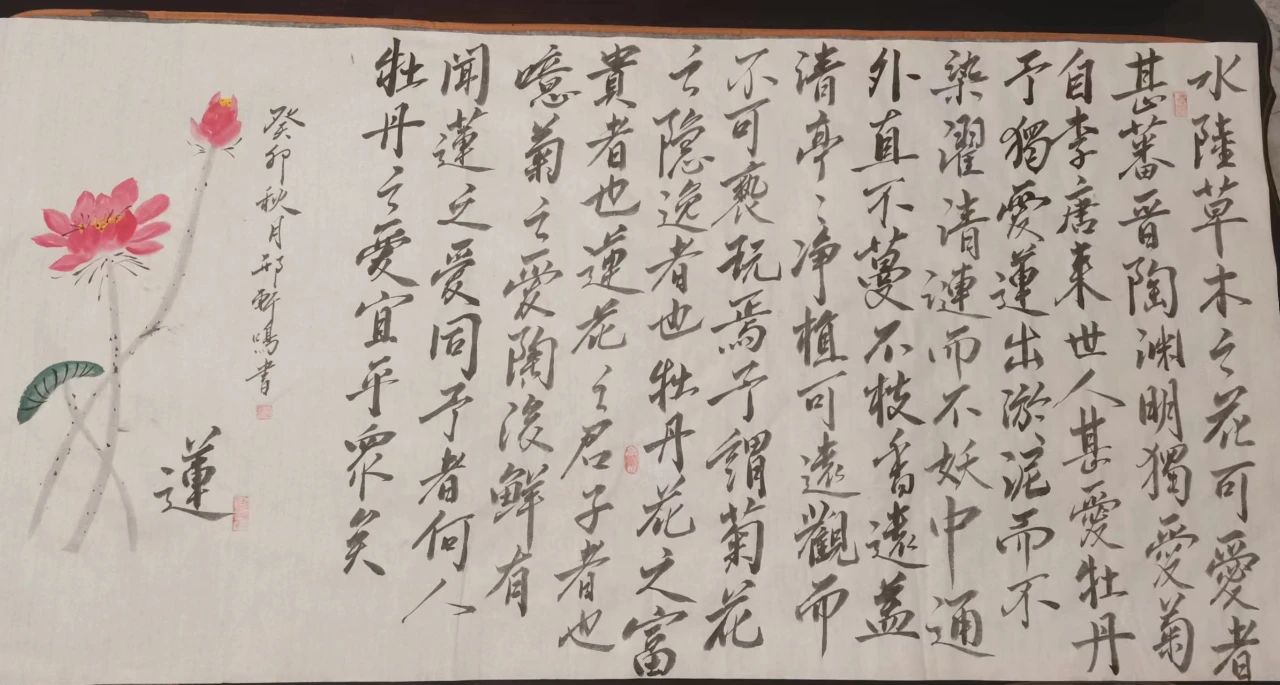 水陸草木之花可愛者
甚蕃晉陶渊明獨愛菊
自李唐来世人甚愛牡丹
予獨愛蓮出淤泥而不
染濯清漣而不妖中通
外直不蔓不枝香遠益
清亭〻净植可遠觀而
不可褻玩焉予謂菊花
之隐逸者也牡丹花之富
貴者也蓮花之君子者也
噫菊之愛陶後鮮有
聞蓮之愛同予者何人
牡丹之愛宜乎眾矣
癸卯秋月邢軒鳴書
蓮